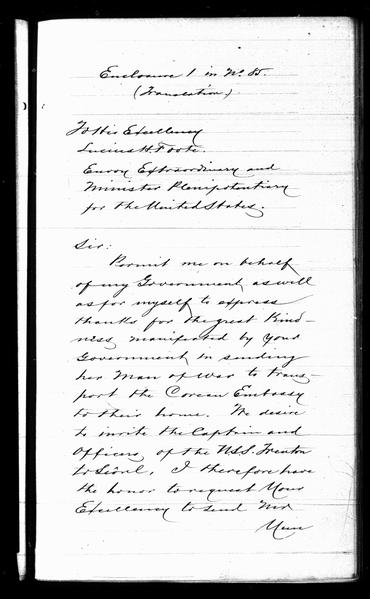 Enclosure 1 in No. 85.
(Translation).
To His Excellency
Lucius H. Foote.
Envoy Extraordinary and
Minister Plenipotentiary
for the United States.
Sir:
Permit me on behalf
of my Government, as well
as for myself to express
thanks for the great kind-
ness, manifested by your
Government, in sending
her Man of War to trans-
port the Corean Embassy
to their home. We desire
to invite the Captain and
Officers of the U.S.S. Trenton
to Söul. I therefore have
the honor to request Your
Excellency to send